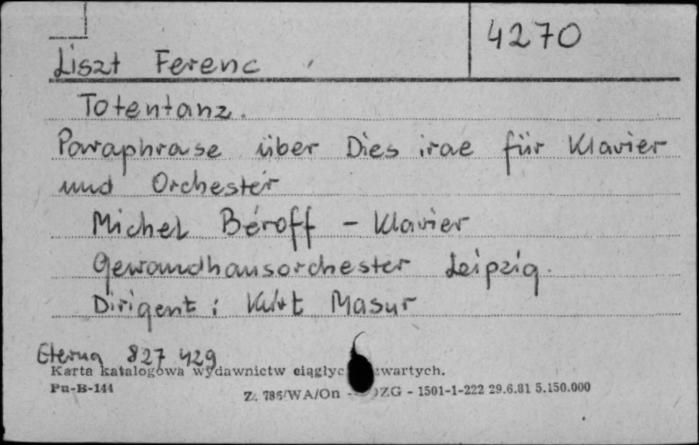 4270
Liszt Ferenc
Totentanz.
Paraphrase über Dies irae für Klavier
und Orchester
Michel Béroff - Klavier
Gewandhausorchester Leipzig.
Dirigent: Kurt Masur
Eterna 827 429
Karta katalogowa wydawnictw ciągłyc zwartych.
Pu-B-144
Z. 786/WA/On - OZG - 1501-1-222 29.6.81 5.150.000